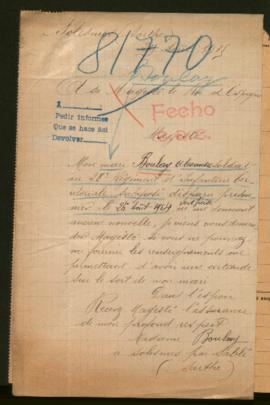 Solesmes
81770
Boulay
A Sa Majesté le Roi d'Espagne
A
Pedir informes
Que se hace así
Devolver
Fecho
Majesté
Mon mari Boulay soldat
au 28e Régiment d'Infanterie ter-
ritoriale disparu
le 25 août 1914
aucune nouvelle, je viens vous deman-
der Majesté si vous ne pourriez
me fournir les renseignements me
permettant d'avoir une certitude
sur le sort de mon mari
Dans l'espoir
Recevez Majesté l'assurance
de mon profond respect
Madame Boulay
a Solesmes par Sablé
(Sarthe)